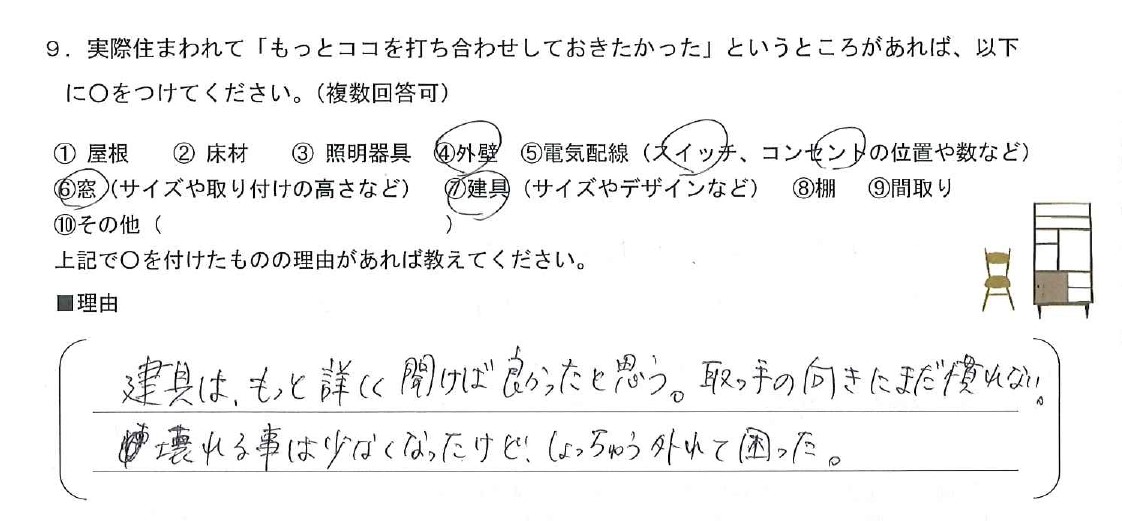 9．実際住まわれて「もっとココを打ち合わせしておきたかった」というところがあれば、以下
に〇をつけてください。（複数回答可）
① 屋根　② 床材　③ 照明器具　④外壁　⑤電気配線（スイッチ、コンセントの位置や数など）
⑥窓（サイズや取り付けの高さなど）　⑦建具（サイズやデザインなど）　⑧棚　⑨間取り
⑩その他（　　　　　　　　　　　　　）
上記で〇を付けたものの理由があれば教えてください。
■理由
建具は、もっと詳しく聞けば良かったと思う。取っ手の向きにまだ慣れない。
壊れる事は少なくなったけど、しょっちゅう外れて困った。